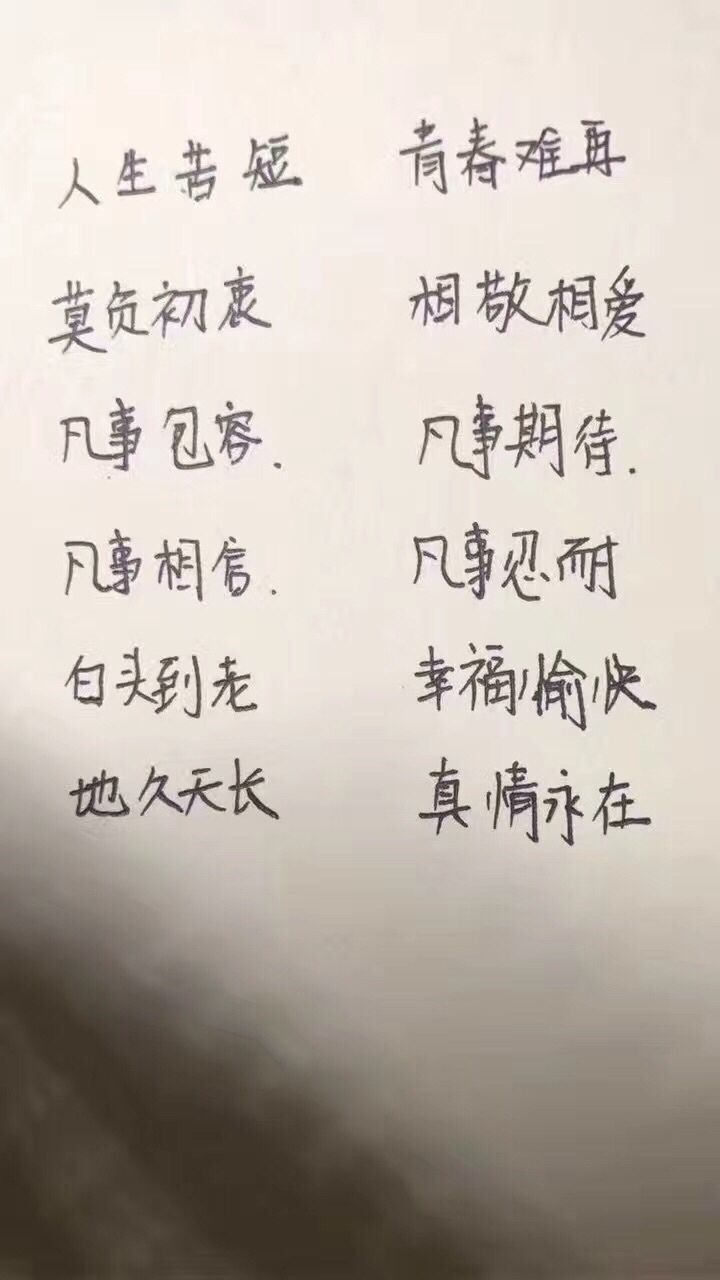 人生苦短 青春难再
莫负初衷 相敬相爱
凡事包容. 凡事期待.
凡事相信. 凡事忍耐
白头到老 幸福愉快
地久天长 真情永在